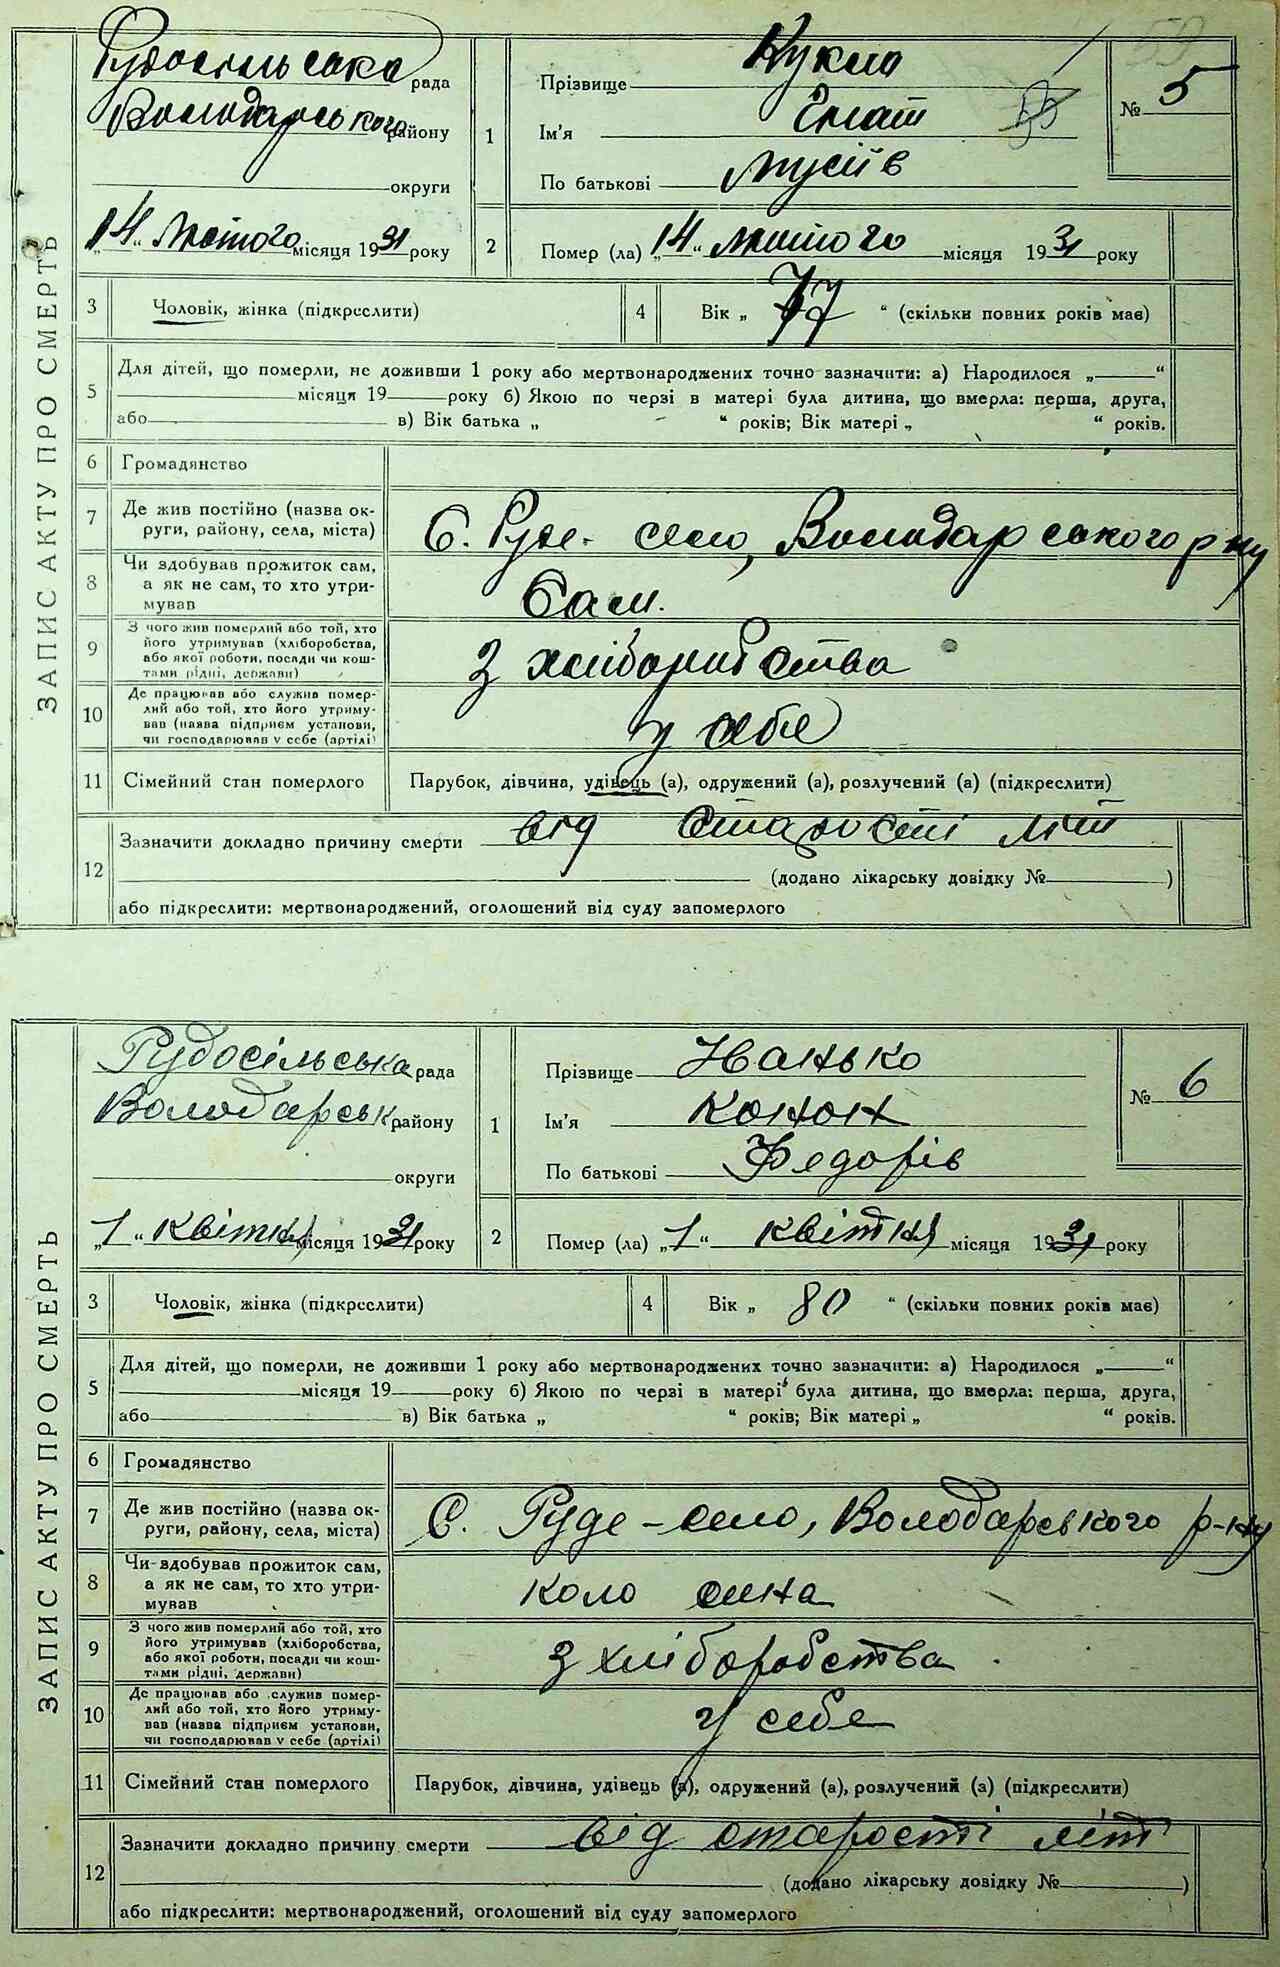 ЗАПИС АКТУ ПРО СМЕРТЬ
Рудосільська рада
Володарського району
округи
„14“ Лютого місяця 1931 року
1
Прізвище Кукло
Ім'я Ігнат
По батькові Мусіїв
№ 5
2
Помер (ла) „14“ лютого місяця 1931 року
3 Чоловік, жінка (підкреслити)
4 Вік „ 77 “ (скільки повних років має)
5 Для дітей, що померли, не доживши 1 року або мертвонароджених точно зазначити: а) Народилося „ “
місяця 19 року б) Якою по черзі в матері була дитина, що вмерла: перша, друга,
або в) Вік батька „ “ років; Вік матері „ “ років.
6 Громадянство
7 Де жив постійно (назва ок-
руги, району, села, міста)
С. Руде-село, Володарського р-ну
8 Чи здобував прожиток сам,
а як не сам, то хто утри-
мував
Сам.
9 З чого жив померлий або той, хто
його утримував (хліборобства,
або якої роботи, посади чи кош-
тами рідні, держави)
З хліборобства
10 Де працював або служив помер-
лий або той, хто його утриму-
вав (назва підприєм установи,
чи господарював у себе (артілі)
у себе
11 Сімейний стан померлого
Парубок, дівчина, удівець (а), одружений (а), розлучений (а) (підкреслити)
12 Зазначити докладно причину смерти від старості літ
(додано лікарську довідку № )
або підкреслити: мертвонароджений, оголошений від суду запомерлого
ЗАПИС АКТУ ПРО СМЕРТЬ
Рудосільська рада
Володарськ району
округи
„1“ квітня місяця 1931 року
1
Прізвище Нанько
Ім'я Конон
По батькові Федорів
№ 6
2
Помер (ла) „1“ квітня місяця 1931 року
3 Чоловік, жінка (підкреслити)
4 Вік „ 80 “ (скільки повних років має)
5 Для дітей, що померли, не доживши 1 року або мертвонароджених точно зазначити: а) Народилося „ “
місяця 19 року б) Якою по черзі в матері була дитина, що вмерла: перша, друга,
або в) Вік батька „ “ років; Вік матері „ “ років.
6 Громадянство
7 Де жив постійно (назва ок-
руги, району, села, міста)
С. Руде-село, Володарського р-ну
8 Чи здобував прожиток сам,
а як не сам, то хто утри-
мував
коло сина
9 З чого жив померлий або той, хто
його утримував (хліборобства,
або якої роботи, посади чи кош-
тами рідні, держави)
З хліборобства
10 Де працював або служив помер-
лий або той, хто його утриму-
вав (назва підприєм установи,
чи господарював у себе (артілі)
у себе
11 Сімейний стан померлого
Парубок, дівчина, удівець (а), одружений (а), розлучений (а) (підкреслити)
12 Зазначити докладно причину смерти від старості літ
(додано лікарську довідку № )
або підкреслити: мертвонароджений, оголошений від суду запомерлого